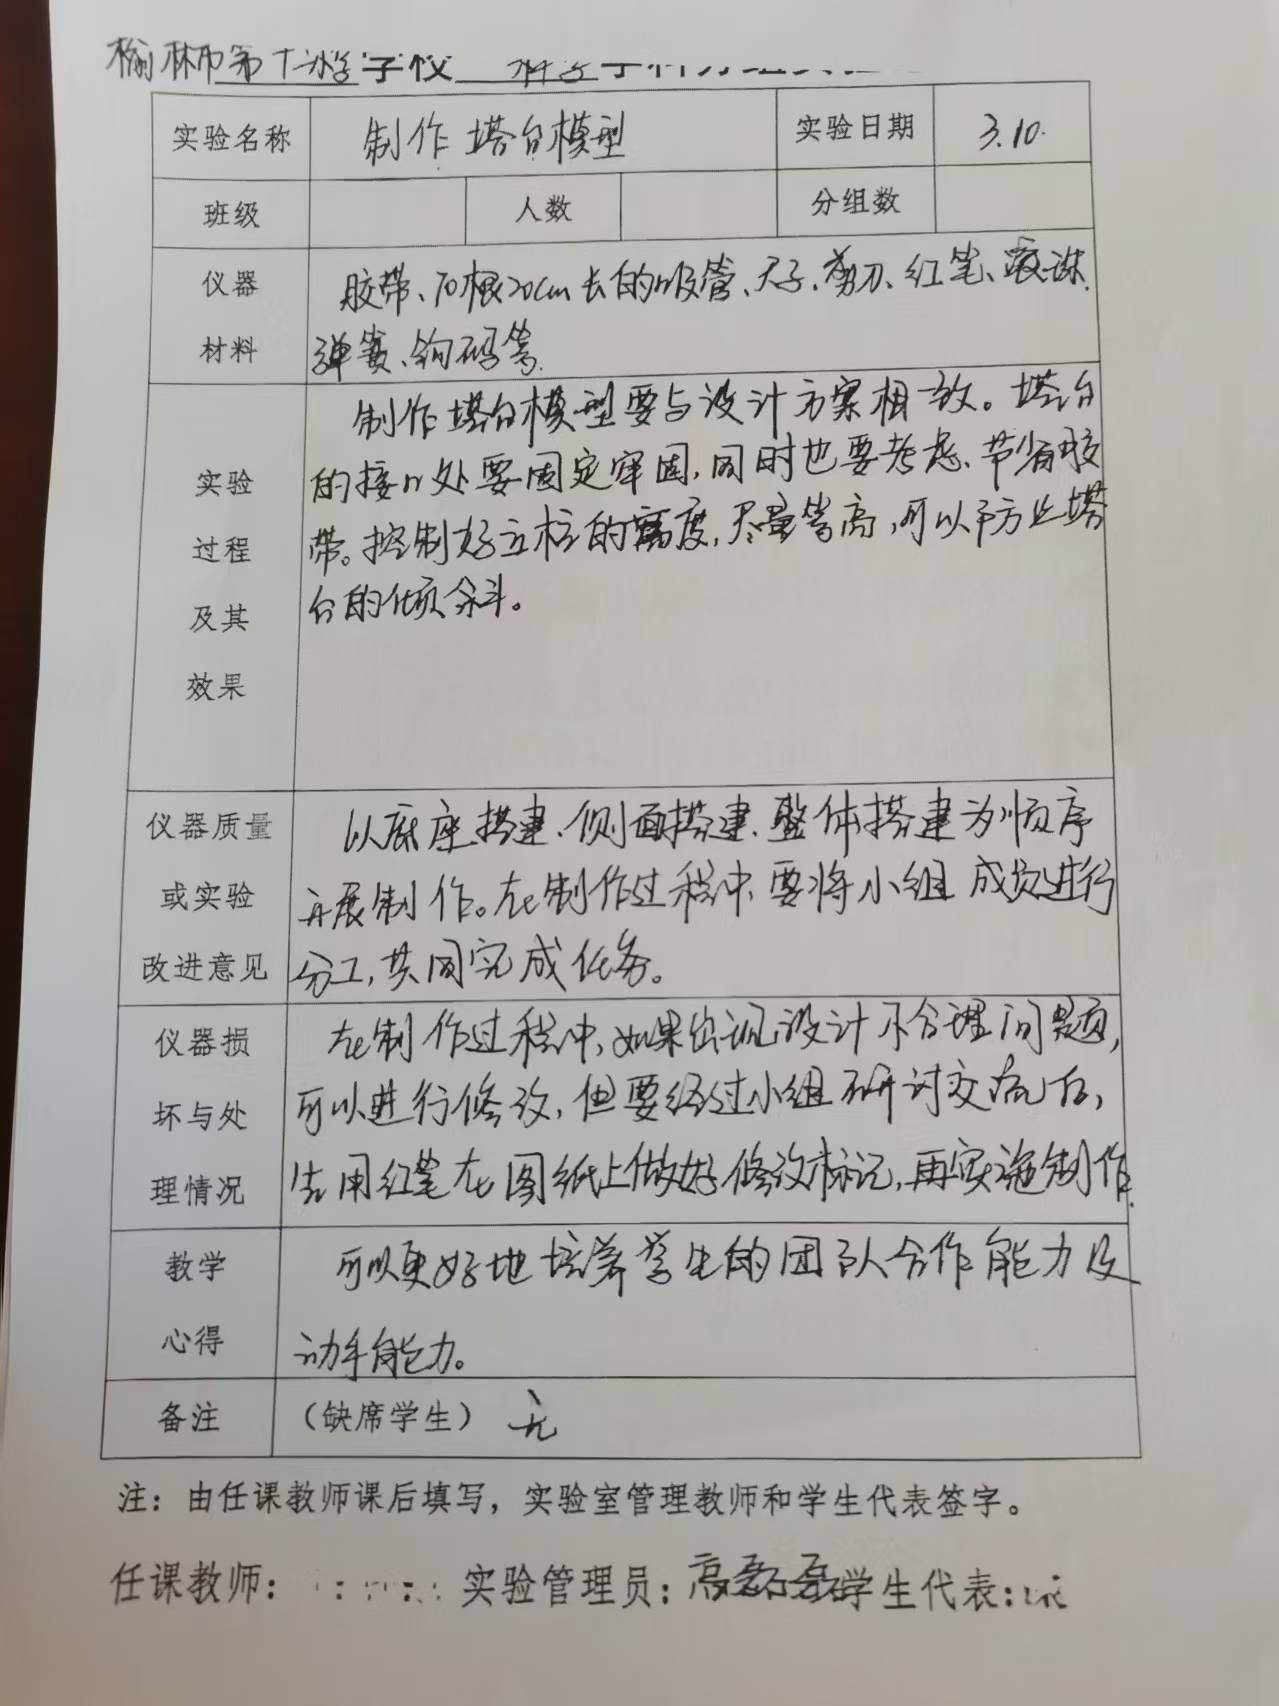 榆林市第十二小学学校 科学学科分组实验
实验名称 制作塔台模型 实验日期 3.10.
班级 人数 分组数
仪器 胶带、70根20cm长的吸管、尺子、剪刀、红笔、滚珠、
材料 弹簧、钩码等.
制作塔台模型要与设计方案相一致。塔台
的接口处要固定牢固,同时也要考虑、节省胶
实验
带。控制好立柱的高度,尽量等高,可以予方止塔
过程
台的倾斜。
及其
效果
仪器质量 以底座搭建、侧面搭建、整体搭建为顺序
或实验 开展制作。在制作过程中,要将小组成员进行
改进意见 分工,共同完成任务。
仪器损 在制作过程中,如果出现设计不合理问题,
坏与处 可以进行修改,但要经过小组研讨交流后,
理情况 先用红笔在图纸上做好修改标记,再实施制作.
教学 可以更好地培养学生的团队合作能力及
心得 动手能力。
备注 (缺席学生) 无
注:由任课教师课后填写,实验室管理教师和学生代表签字。
任课教师: 实验管理员:高磊磊学生代表: